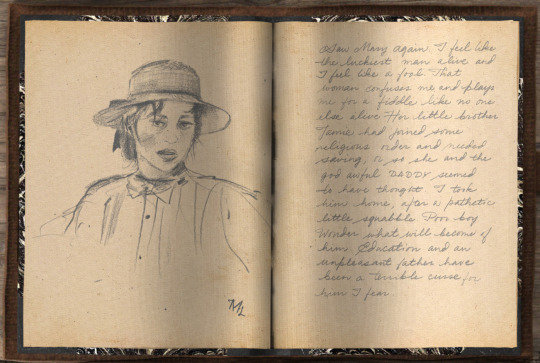 ML
Saw Mary again. I feel like
the luckiest man alive and
I feel like a fool. That
woman confuses me and plays
me for a fiddle like no one
else alive Her little brother
Jamie had joined some
religious order and needed
saving, or so she and the
god awful DADDY seemed
to have thought. I took
him home, after a pathetic
little squabble. Poor boy
Wonder what will become of
him. Education and an
unpleasant father have
been a terrible curse for
him I fear